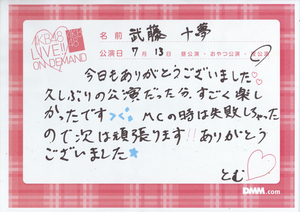 AKB48 LIVE!! ON DEMAND
名前 武藤 十夢
公演日 7月13日 昼公演・おやつ公演・夜公演
今日もありがとうございました
久しぶりの公演だった分、すごく楽し
かったです><ﾟ MCの時は失敗しちゃった
ので次は頑張ります!! ありがとう
ございました
とむ
DMM.com